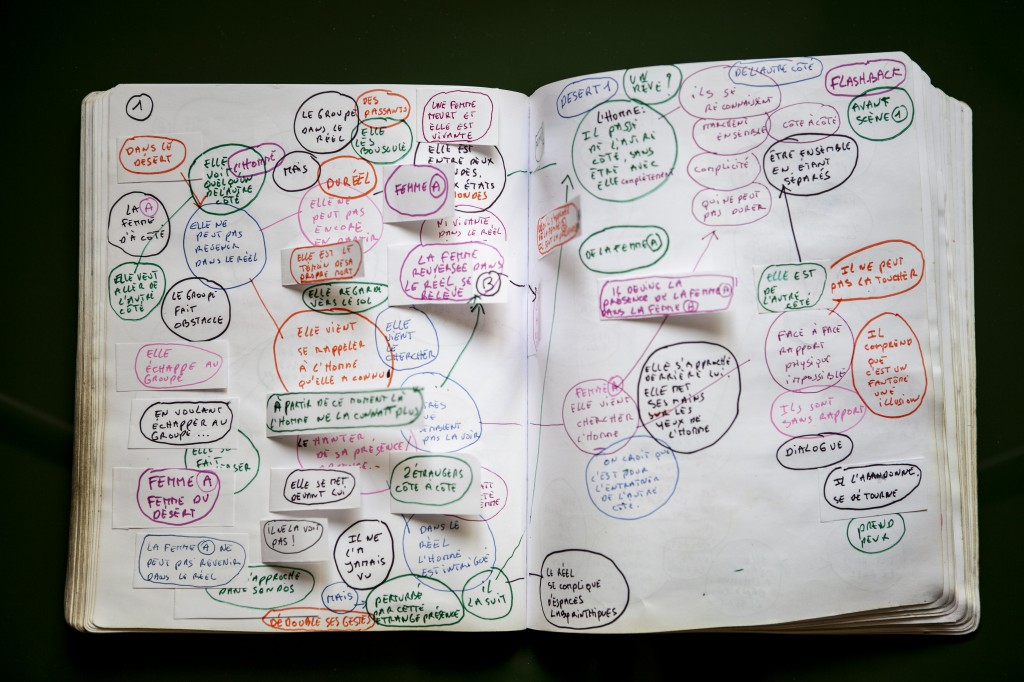 1
DANS LE
DÉSERT
ELLE
VOIT
QUELQU'UN
DE L'AUTRE
CÔTÉ
L'HOMME
MAIS
LE GROUPE
DANS LE
RÉEL
DES
PASSANTS
ELLE
LES
BOUSCULE
UNE FEMME
MEURT ET
ELLE EST
VIVANTE
ELLE EST
ENTRE DEUX
ÉTATS
DU RÉEL
FEMME A
LA A
FEMME
D'À CÔTÉ
ELLE NE
PEUT PAS
REVENIR
DANS LE RÉEL
ELLE NE
PEUT PAS
ENCORE
EN PARTIR
NI VIVANTE
DANS LE RÉEL
ELLE EST LE
TÉMOIN DE SA
PROPRE MORT
LA FEMME
RENVERSÉE DANS
LE RÉEL, SE
RELÈVE B
ELLE VEUT
ALLER DE
L'AUTRE
CÔTÉ
LE GROUPE
FAIT
OBSTACLE
ELLE REGARDE
VERS LE SOL
ELLE VIENT
SE RAPPELER
À L'HOMME
QU'ELLE A CONNU
ELLE
VIENT
LE
CHERCHER
ELLE
ÉCHAPPE AU
GROUPE
À PARTIR DE CE MOMENT LÀ
L'HOMME NE LA CONNAÎT PLUS
EN VOULANT
ÉCHAPPER AU
GROUPE...
PAS LA VOIR
LE HANTER
DE SA PRÉSENCE
FEMME A
FEMME DU
DÉSERT
ELLE SE MET
DEVANT LUI
2 ÉTRANGERS
CÔTE À CÔTE
IL NE LA VOIT
PAS !
IL NE
L'A
JAMAIS
VU
DANS LE
RÉEL
L'HOMME
EST INTRIGUÉ
LA FEMME A NE
PEUT PAS REVENIR
DANS LE RÉEL
S'APPROCHE
DANS SON DOS
MAIS
PERTURBÉ
PAR CETTE
ÉTRANGE PRÉSENCE
IL
LA SUIT
DÉDOUBLE SES GESTES
DÉSERT 1
UN
RÊVE ?
ILS SE
RECONNAISSENT
DE L'AUTRE CÔTÉ
FLASHBACK
AVANT
SCÈNE 1
L'HOMME:
IL PASSE
DE L'AUTRE
CÔTÉ, SANS
ÊTRE AVEC
ELLE COMPLÈTEMENT
MARCHENT
ENSEMBLE
CÔTE À CÔTE
COMPLICITÉ
ÊTRE ENSEMBLE
EN ÉTANT
SÉPARÉS
QUI NE PEUT
PAS DURER
DE LA FEMME A
IL DEVINE LA
PRÉSENCE DE LA FEMME A
DANS LA FEMME B
ELLE EST
DE
L'AUTRE CÔTÉ
IL NE PEUT
PAS LA TOUCHER
FACE À FACE
RAPPORT
PHYSIQUE
IMPOSSIBLE
IL
COMPREND
QUE
C'EST UN
FANTÔME
UNE
ILLUSION
FEMME A
ELLE VIENT
CHERCHER
L'HOMME
ELLE S'APPROCHE
DERRIÈRE LUI
ELLE MET
SES MAINS
SUR LES
YEUX DE
L'HOMME
ILS SONT
SANS RAPPORT
DIALOGUE
ON CROIT QUE
C'EST POUR
L'ENTRAÎNER
DE L'AUTRE
CÔTÉ.
IL L'ABANDONNE.
SE DÉTOURNE
PREND
PEUR
LE RÉEL
SE COMPLIQUE
D'ESPACES
LABYRINTHIQUES